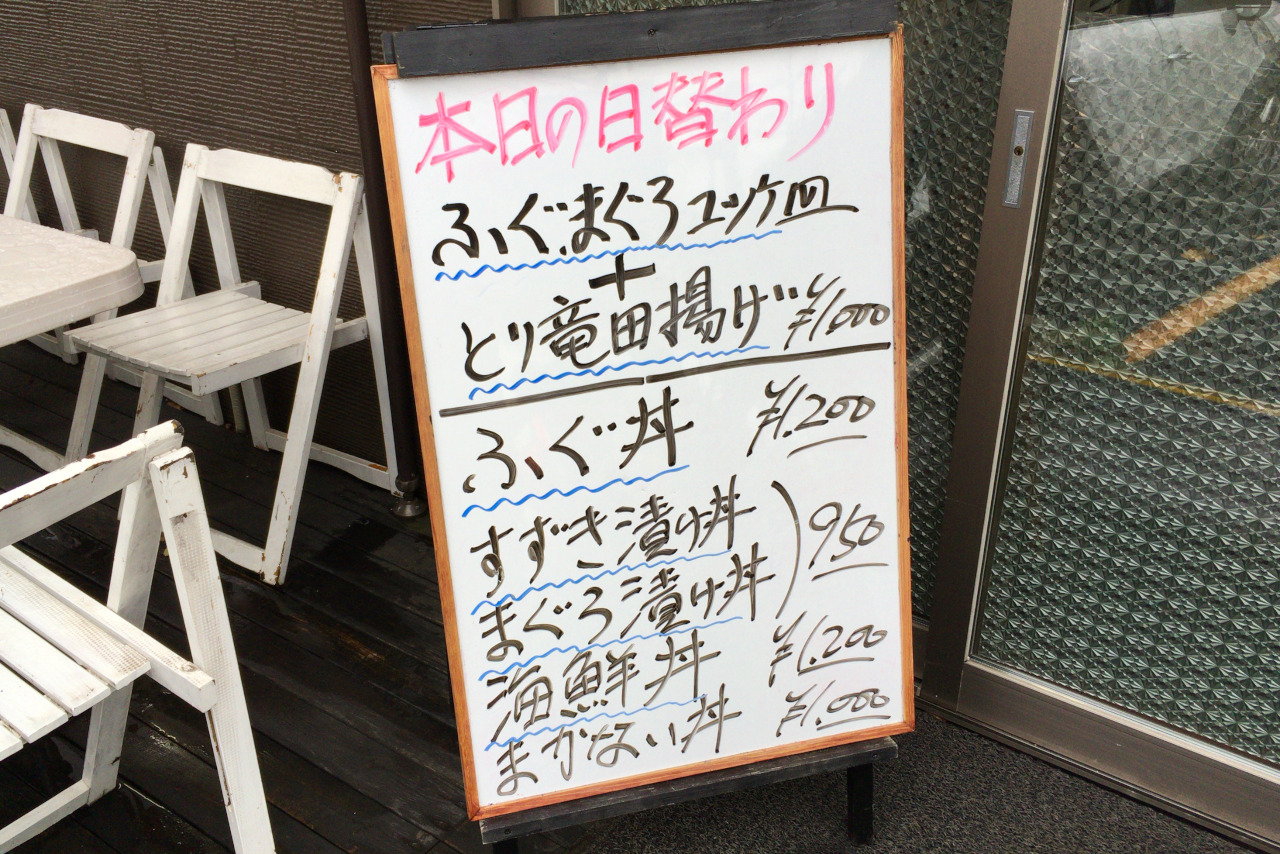 本日の日替わり
ふぐ.まぐろユッケ皿
+
とり竜田揚げ ¥1,000
ふぐ丼 ¥1.200
すずき漬け丼
まぐろ漬け丼 ) 950
海鮮丼 ¥1.200
まかない丼 ¥1.000